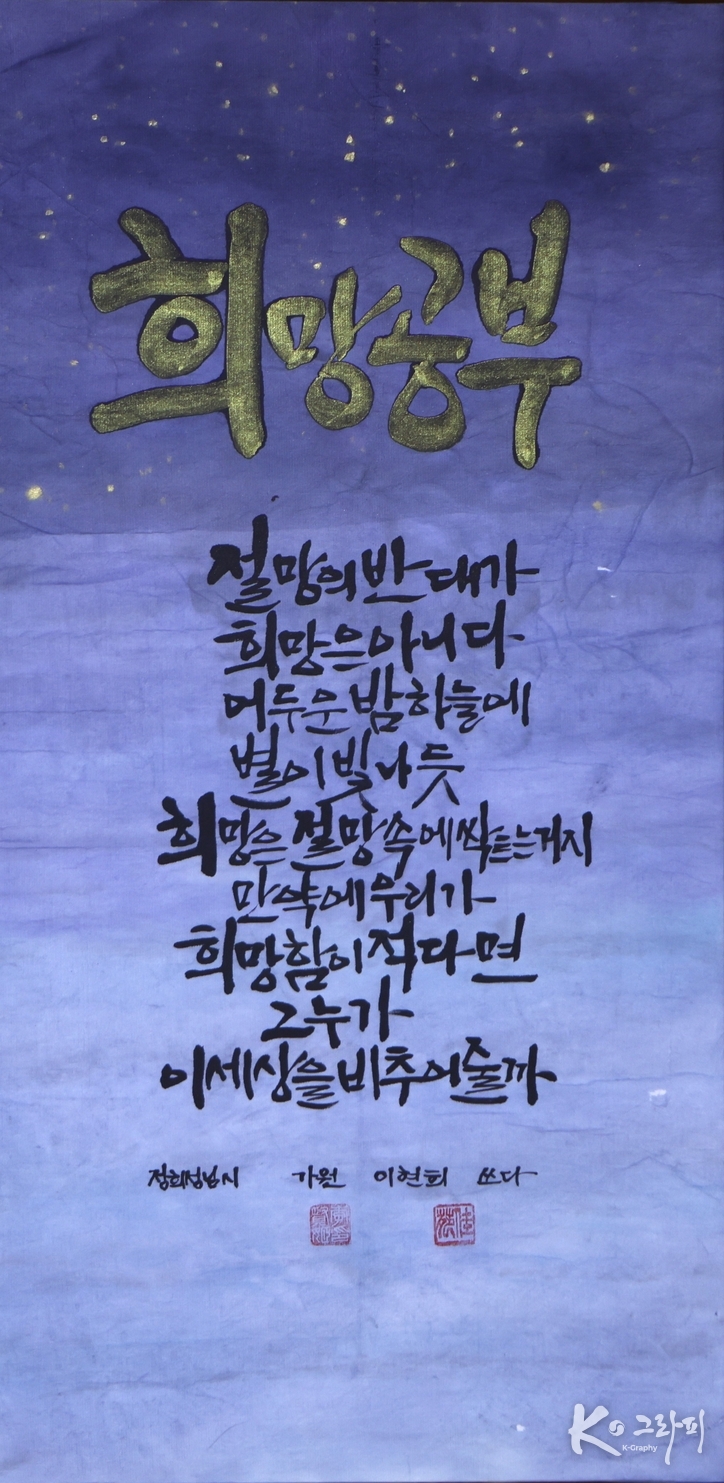 희망공부
절망의 반대가
희망은 아니다
어두운 밤하늘에
별이 빛나듯
희망은 절망 속에 싹트는 거지
만약에 우리가
희망함이 적다면
그 누가
이 세상을 비추어줄까
정희성님 시 가원 이현희 쓰다
K 그라피
K-Graphy